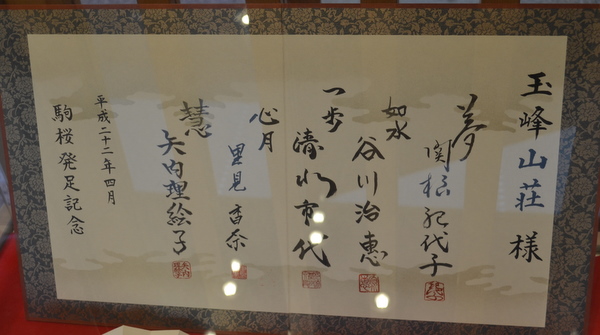 玉峰山荘 様
夢
関根紀代子
如水
谷川治惠
一歩
清水市代
心月
里見香奈
慧
矢内理絵子
平成二十二年四月
駒桜発足記念